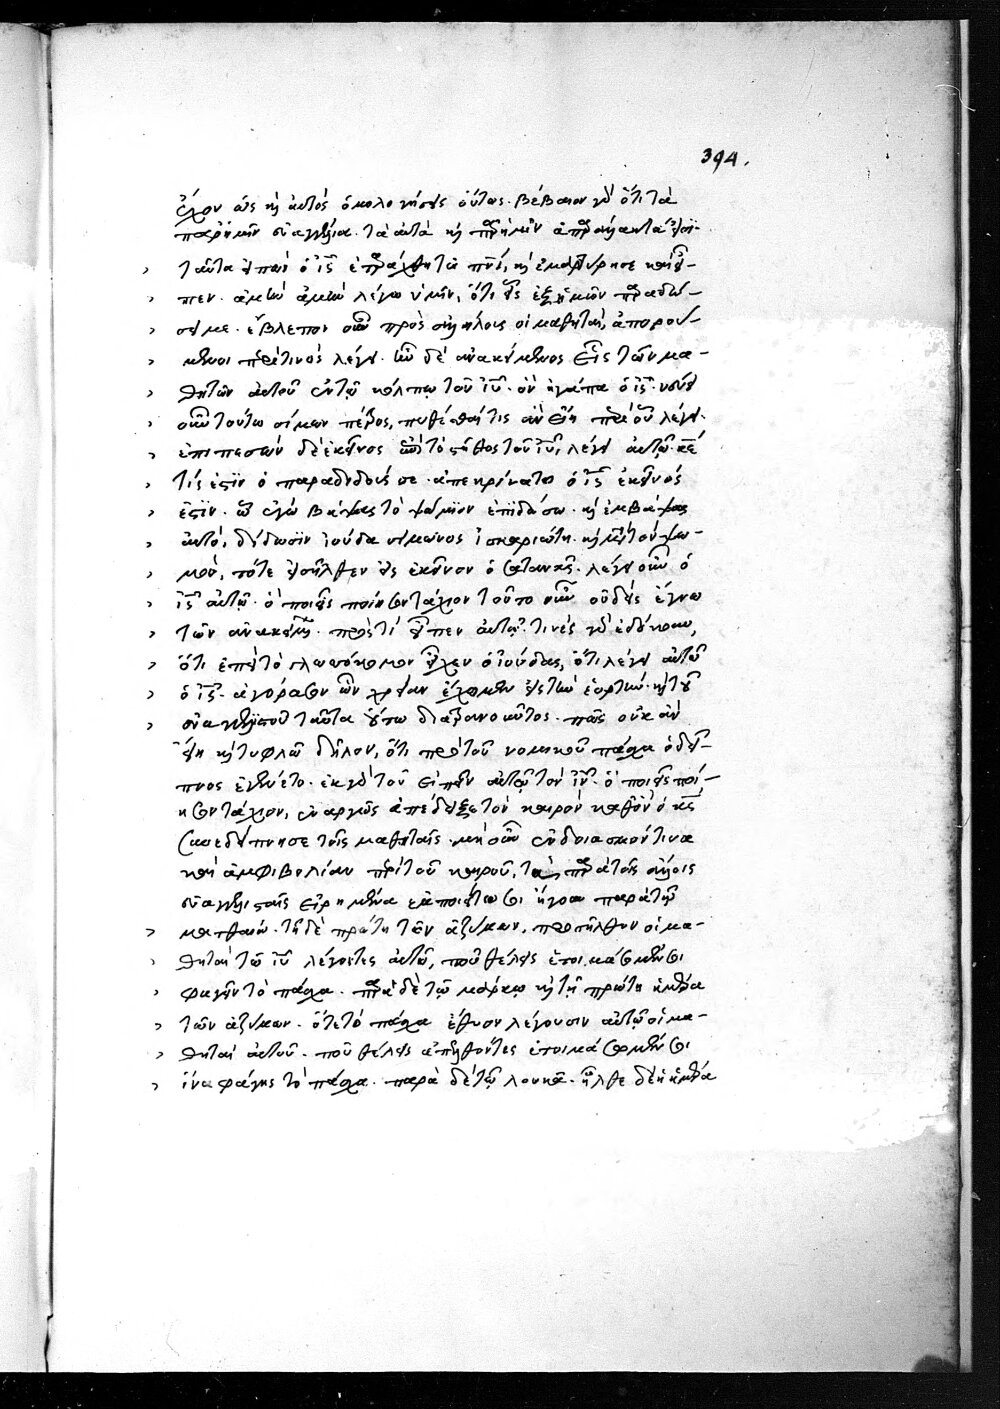 394.
ἔχον ὡς κ αὐτὸς ὁμολογήσεις οὕτως. βέβαιον γὰρ ὅτι τὰ
παρ' ἡμῖν εὐαγγέλια. τὰ αὐτὰ κ
ταῦτα εἰπὼν ὁ ις ἐταράχθη τῶ πνι, κ ἐμαρτύρησε καὶ εἶ-
πεν. ἀμὴν ἀμὴν λέγω ὑμῖν, ὅτι εἷς ἐξ ὑμῶν παραδώ-
σει με. ἔβλεπον οὖν πρὸς ἀλλήλους οἱ μαθηταὶ, ἀπορού-
μενοι περὶ τίνος λέγει. ἦν δὲ ἀνακείμενος εἷς τῶν μα-
θητῶν αὐτοῦ ἐν τῷ κόλπῳ τοῦ ιυ. ὃν ἠγάπα ὁ ις. νεύει
οὖν τούτω σίμων πέτρος, πυθέσθαι τίς ἂν εἴη περὶ οὗ λέγει.
ἐπιπεσὼν δὲ ἐκεῖνος ἐπὶ τὸ στῆθος τοῦ ιυ, λέγει αὐτῷ. κε
τίς ἐστιν ὁ παραδιδούς σε. ἀπεκρίνατο ὁ ις ἐκεῖνός
ἐστιν. ᾧ ἐγὼ βάψας τὸ ψωμίον ἐπιδώσω. κ ἐμβάψας
αὐτό, δίδωσιν ἰούδα σίμωνος ἰσκαριώτη. κ μετὰ τὸν ψω-
μὸν, τότε εἰσῆλθεν εἰς ἐκεῖνον ὁ σατανᾶς. λέγει οὖν ὁ
ις αὐτῷ. ὃ ποιεῖς ποίησον τάχιον τοῦτο οὖν οὐδεὶς ἔγνω
τῶν ἀνακειμένων. πρὸς τί εἶπεν αὐτῷ. τινὲς γὰρ ἐδόκουν,
ὅτι ἐπεὶ τὸ γλωσσόκομον εἶχεν ὁ ἰούδας, ὅτι λέγει αὐτῷ
ὁ ις. ἀγόρασον ὧν χρείαν ἔχομεν εἰς τὴν ἑορτήν. κ τοῦ
εὐαγγελιστοῦ ταῦτα οὕτω διασαφοῦντος. πῶς οὐκ ἂν
εἴη κ τυφλῷ δῆλον, ὅτι πρὸ τοῦ νομικοῦ πάσχα ὁ δεῖ-
πνος ἐγένετο. ἐκ γὰρ τοῦ εἰπεῖν αὐτῷ τὸν ιν. ὃ ποιεῖς ποί-
ησον τάχιον, ἐναργῶς ἀπέδειξε τὸν καιρὸν καθ' ὃν ὁ κς
συνεδείπνησε τοῖς μαθηταῖς. μὴ οὖν ἐνδοιασμόν τινα
καὶ ἀμφιβολίαν περὶ τοῦ καιροῦ, τὰ παρὰ τοῖς ἄλλοις
εὐαγγελισταῖς εἰρημένα ἐμποιείτωσι ἤγουν παρὰ τῷ
ματθαίῳ. τῇ δὲ πρώτη τῶν ἀζύμων, προσῆλθον οἱ μα-
θηταὶ τῷ ιυ λέγοντες αὐτῷ, ποῦ θέλεις ἑτοιμάσωμέν σοι
φαγεῖν τὸ πάσχα. παρὰ δὲ τῷ μάρκῳ κ τῇ πρώτη ἡμέρα
τῶν ἀζύμων. ὅτε τὸ πάσχα ἔθυον λέγουσιν αὐτῷ οἱ μα-
θηταὶ αὐτοῦ. ποῦ θέλεις ἀπελθόντες ἑτοιμάσωμέν σοι
ἵνα φάγῃς τὸ πάσχα. παρὰ δὲ τῷ λουκᾶ. ἦλθε δὲ ἡ ἡμέρα